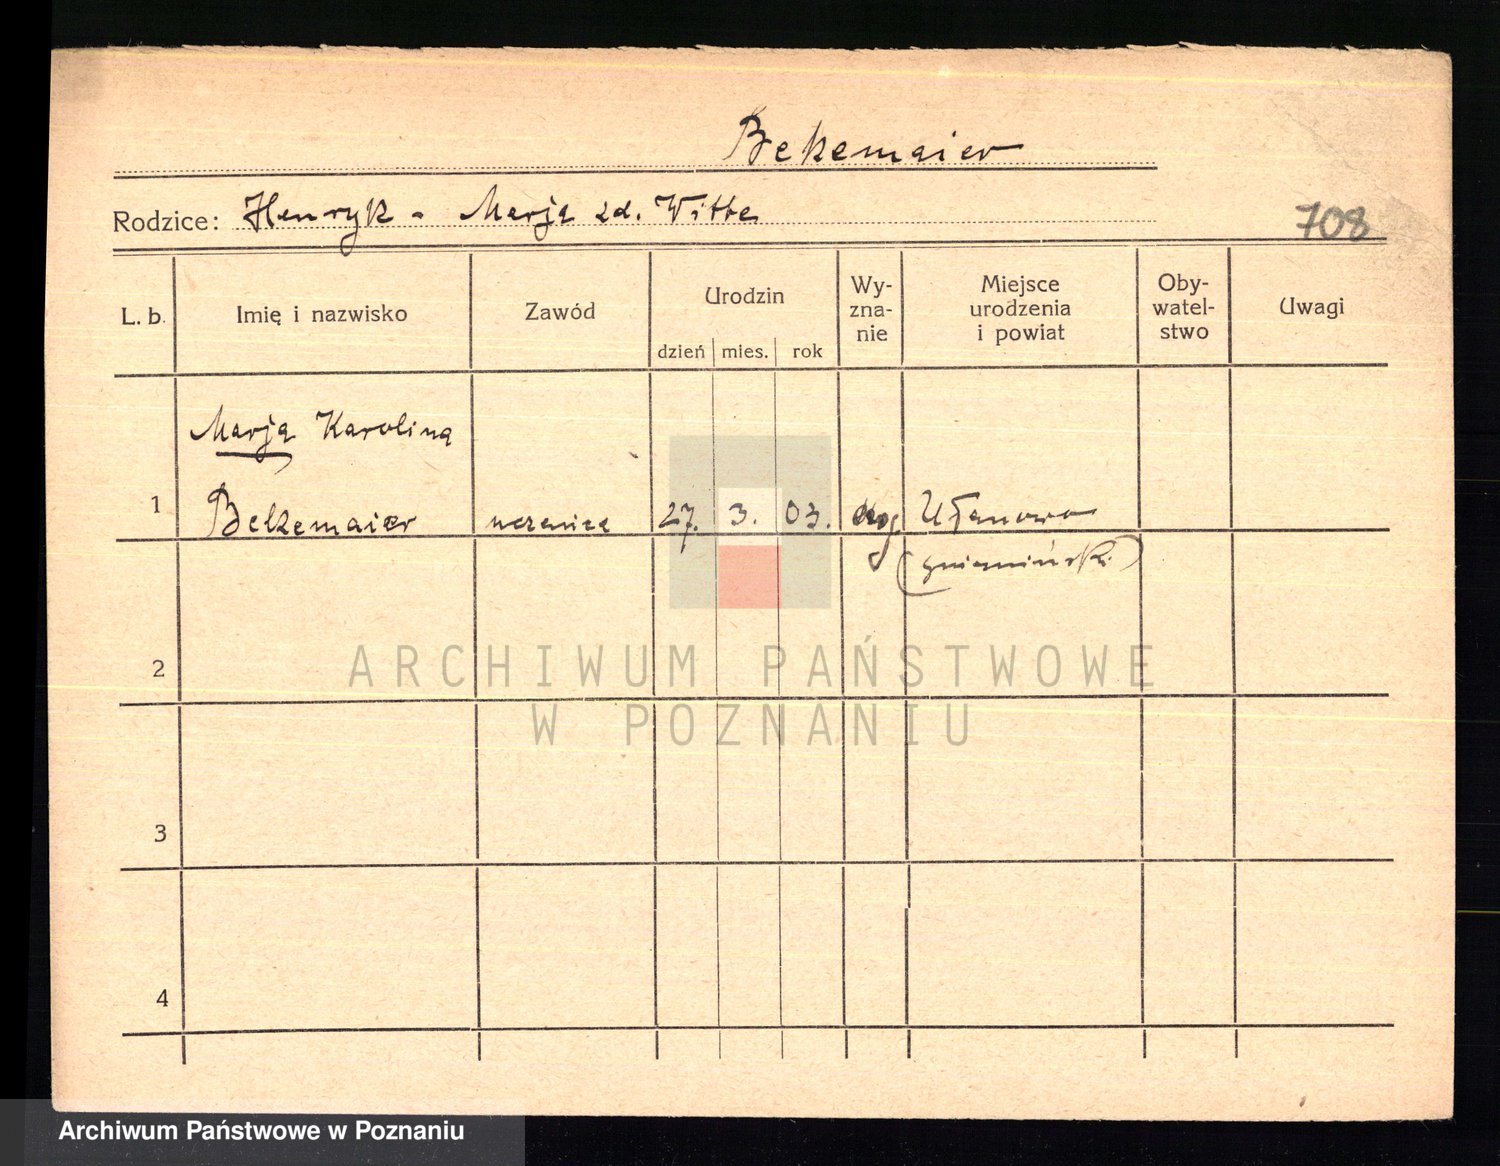 Bekemaier
Rodzice: Henryk - Marja zd. Witte
708
L. b. Imię i nazwisko Zawód Urodzin dzień mies. rok Wy-zna-nie Miejsce urodzenia i powiat Oby-watel-stwo Uwagi
Marja Karolina
1 Bekemaier uczenica 27. 3. 03. Ułanowo
(gnieźnieński)
2
ARCHIWUM PAŃSTWOWE
W POZNANIU
3
4
Archiwum Państwowe w Poznaniu